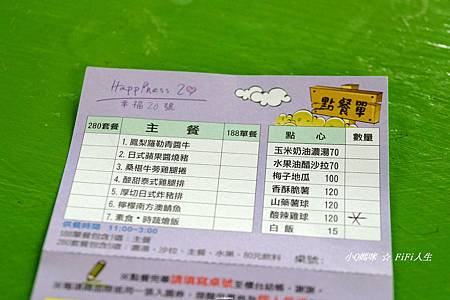 Happiness 20
幸福20號
點餐單
280套餐 主餐 188單餐
1.鳳梨羅勒青醬牛
2.日式蘋果醬燒豬
3.桑椹牛蒡雞腿捲
4.酸甜泰式雞腿排
5.厚切日式炸豬排
6.檸檬南方澳鯖魚
7.素食・時蔬燴飯
點心 數量
玉米奶油濃湯70
水果油醋沙拉70
梅子地瓜 100
香酥脆薯 120
山藥薯球 120
酸辣雞球 120
白飯 15
供餐時間 11:00~3:00
188單餐包含1道:主餐
280套餐包含:濃湯、沙拉、主餐、水果、80元飲料
桌號:
※點餐完畢請填寫桌號至櫃台結帳,謝謝
小Q媽咪 ☆ FiFi人生